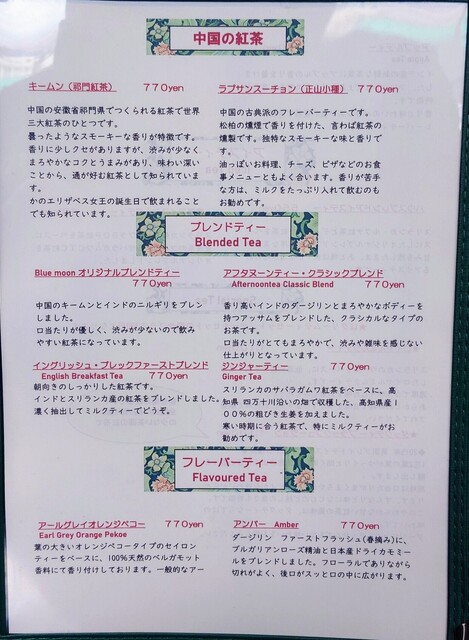 中国の紅茶
キームン（祁門紅茶） 770yen
中国の安徽省祁門県でつくられる紅茶で世界
三大紅茶のひとつです。
曇ったようなスモーキーな香りが特徴です。
香りに少しクセがありますが、渋みが少なく
まろやかなコクとうまみがあり、味わい深い
ことから、通が好む紅茶として知られていま
す。
かのエリザベス女王の誕生日で飲まれること
でも知られています。
ラプサンスーチョン（正山小種） 770yen
中国の古典派のフレーバーティーです。
松柏の燻煙で香りを付けた、言わば紅茶の
燻製です。独特なスモーキーな味と香りで
す。
油っぽいお料理、チーズ、ピザなどのお食
事メニューともよく合います。香りが苦手
な方は、ミルクをたっぷり入れて飲むのも
お勧めです。
ブレンドティー
Blended Tea
Blue moon オリジナルブレンドティー
770yen
中国のキームンとインドのニルギリをブレン
しました。
口当たりが優しく、渋みが少ないので飲み
やすい紅茶になっています。
アフタヌーンティー・クラシックブレンド
Afternoontea Classic Blend 770yen
香り高いインドのダージリンとまろやかなボディーを
持つアッサムをブレンドした、クラシカルなタイプの
お茶です。
口当たりがとてもまろやかで、渋みや雑味を感じない
仕上がりとなっています。
イングリッシュ・ブレックファーストブレンド
English Breakfast Tea 770yen
朝向きのしっかりした紅茶です。
インドとスリランカ産の紅茶をブレンドしました。
濃く抽出してミルクティーでどうぞ。
ジンジャーティー 770yen
Ginger Tea
スリランカのサバラガムワ紅茶をベースに、高
知県 四万十川沿いの畑で収穫した、高知県産1
００％の粗びき生姜を加えました。
寒い時期に合う紅茶で、特にミルクティーがお
勧めです。
フレーバーティー
Flavoured Tea
アールグレイオレンジペコー 770yen
Earl Grey Orange Pekoe
葉の大きいオレンジペコータイプのセイロン
ティーをベースに、100%天然のベルガモット
香料にて香り付けしております。一般的なアー
アンバー Amber 770yen
ダージリン ファーストフラッシュ(春摘み)に、
ブルガリアンローズ精油と日本産ドライカモミー
ルをブレンドしました。フローラルでありながら
切れがよく、後口がスッと口の中に広がります。